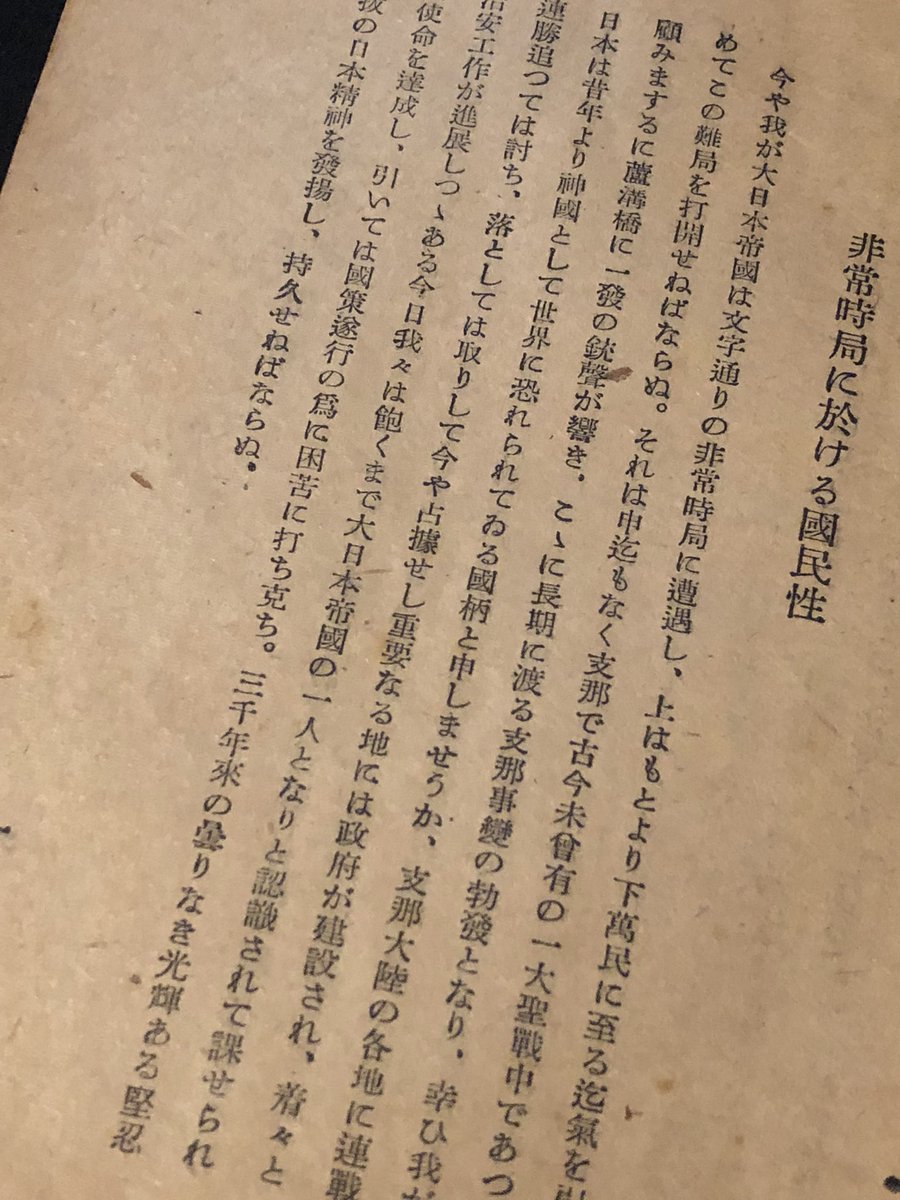 非常時局に於ける國民性
今や我が大日本帝國は文字通りの非常時局に遭遇し、上はもとより下萬民に至る迄氣を
めてこの難局を打開せねばならぬ。それは申迄もなく支那で古今未曾有の一大聖戰中であつ
顧みまするに蘆溝橋に一發の銃聲が響き、こゝに長期に渡る支那事變の勃發となり、幸ひ我が
日本は昔年より神國として世界に恐れられてゐる國柄と申しませうか、支那大陸の各地に連戰
連勝追つては討ち、落としては取りして今や占據せし重要なる地には政府が建設され、着々と
治安工作が進展しつゝある今日我々は飽くまで大日本帝國の一人となりと認識されて課せられ
使命を達成し、引いては國策遂行の爲に困苦に打ち克ち。三千年來の曇りなき光輝ある堅忍
拔の日本精神を發揚し、持久せねばならぬ。